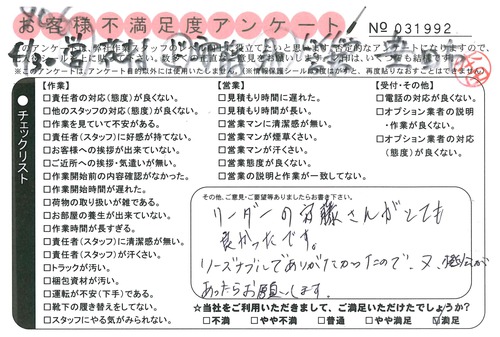 お客様不満足度アンケート
No 031992
チェックリスト
【作業】
□責任者の対応(態度)が良くない。
□他のスタッフの対応(態度)が良くない。
□作業を見ていて不安がある。
□責任者(スタッフ)に好感が持てない。
□お客様への挨拶が出来ていない。
□ご近所への挨拶・気遣いが無い。
□作業開始前の内容確認がなかった。
□作業開始時間が遅れた。
□荷物の取り扱いが雑である。
□お部屋の養生が出来ていない。
□作業時間が長すぎる。
□責任者(スタッフ)に清潔感が無い。
□責任者(スタッフ)が汗くさい。
□トラックが汚い。
□梱包資材が汚い。
□運転が不安(下手)である。
□靴下の履き替えをしてない。
□スタッフにやる気がみられない。
【営業】
□見積もり時間に遅れた。
□見積もり時間が長い。
□営業マンに清潔感が無い。
□営業マンが煙草くさい。
□営業マンが汗くさい。
□営業態度が良くない。
□営業の説明と作業が一致してない。
【受付・その他】
□電話の対応が良くない。
□オプション業者の説明
・作業が良くない。
□オプション業者の対応
(態度)が良くない。
その他、ご意見・ご要望等ありましたらお書き下さい。
リーダーの 藤さんがとても
良かったです。
リーズナブルでありがたかったので、又、機会が
あったらお願いします。
☆当社をご利用いただきまして、ご満足いただけたでしょうか?
□不満 □やや不満 □普通 □やや満足 ☑満足